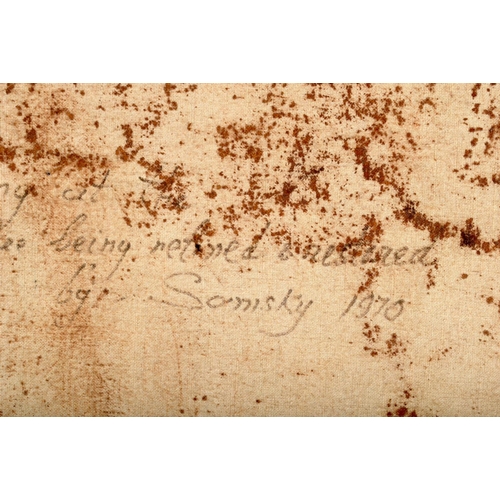 ng at the
being relined & restored
by Somsky 1970